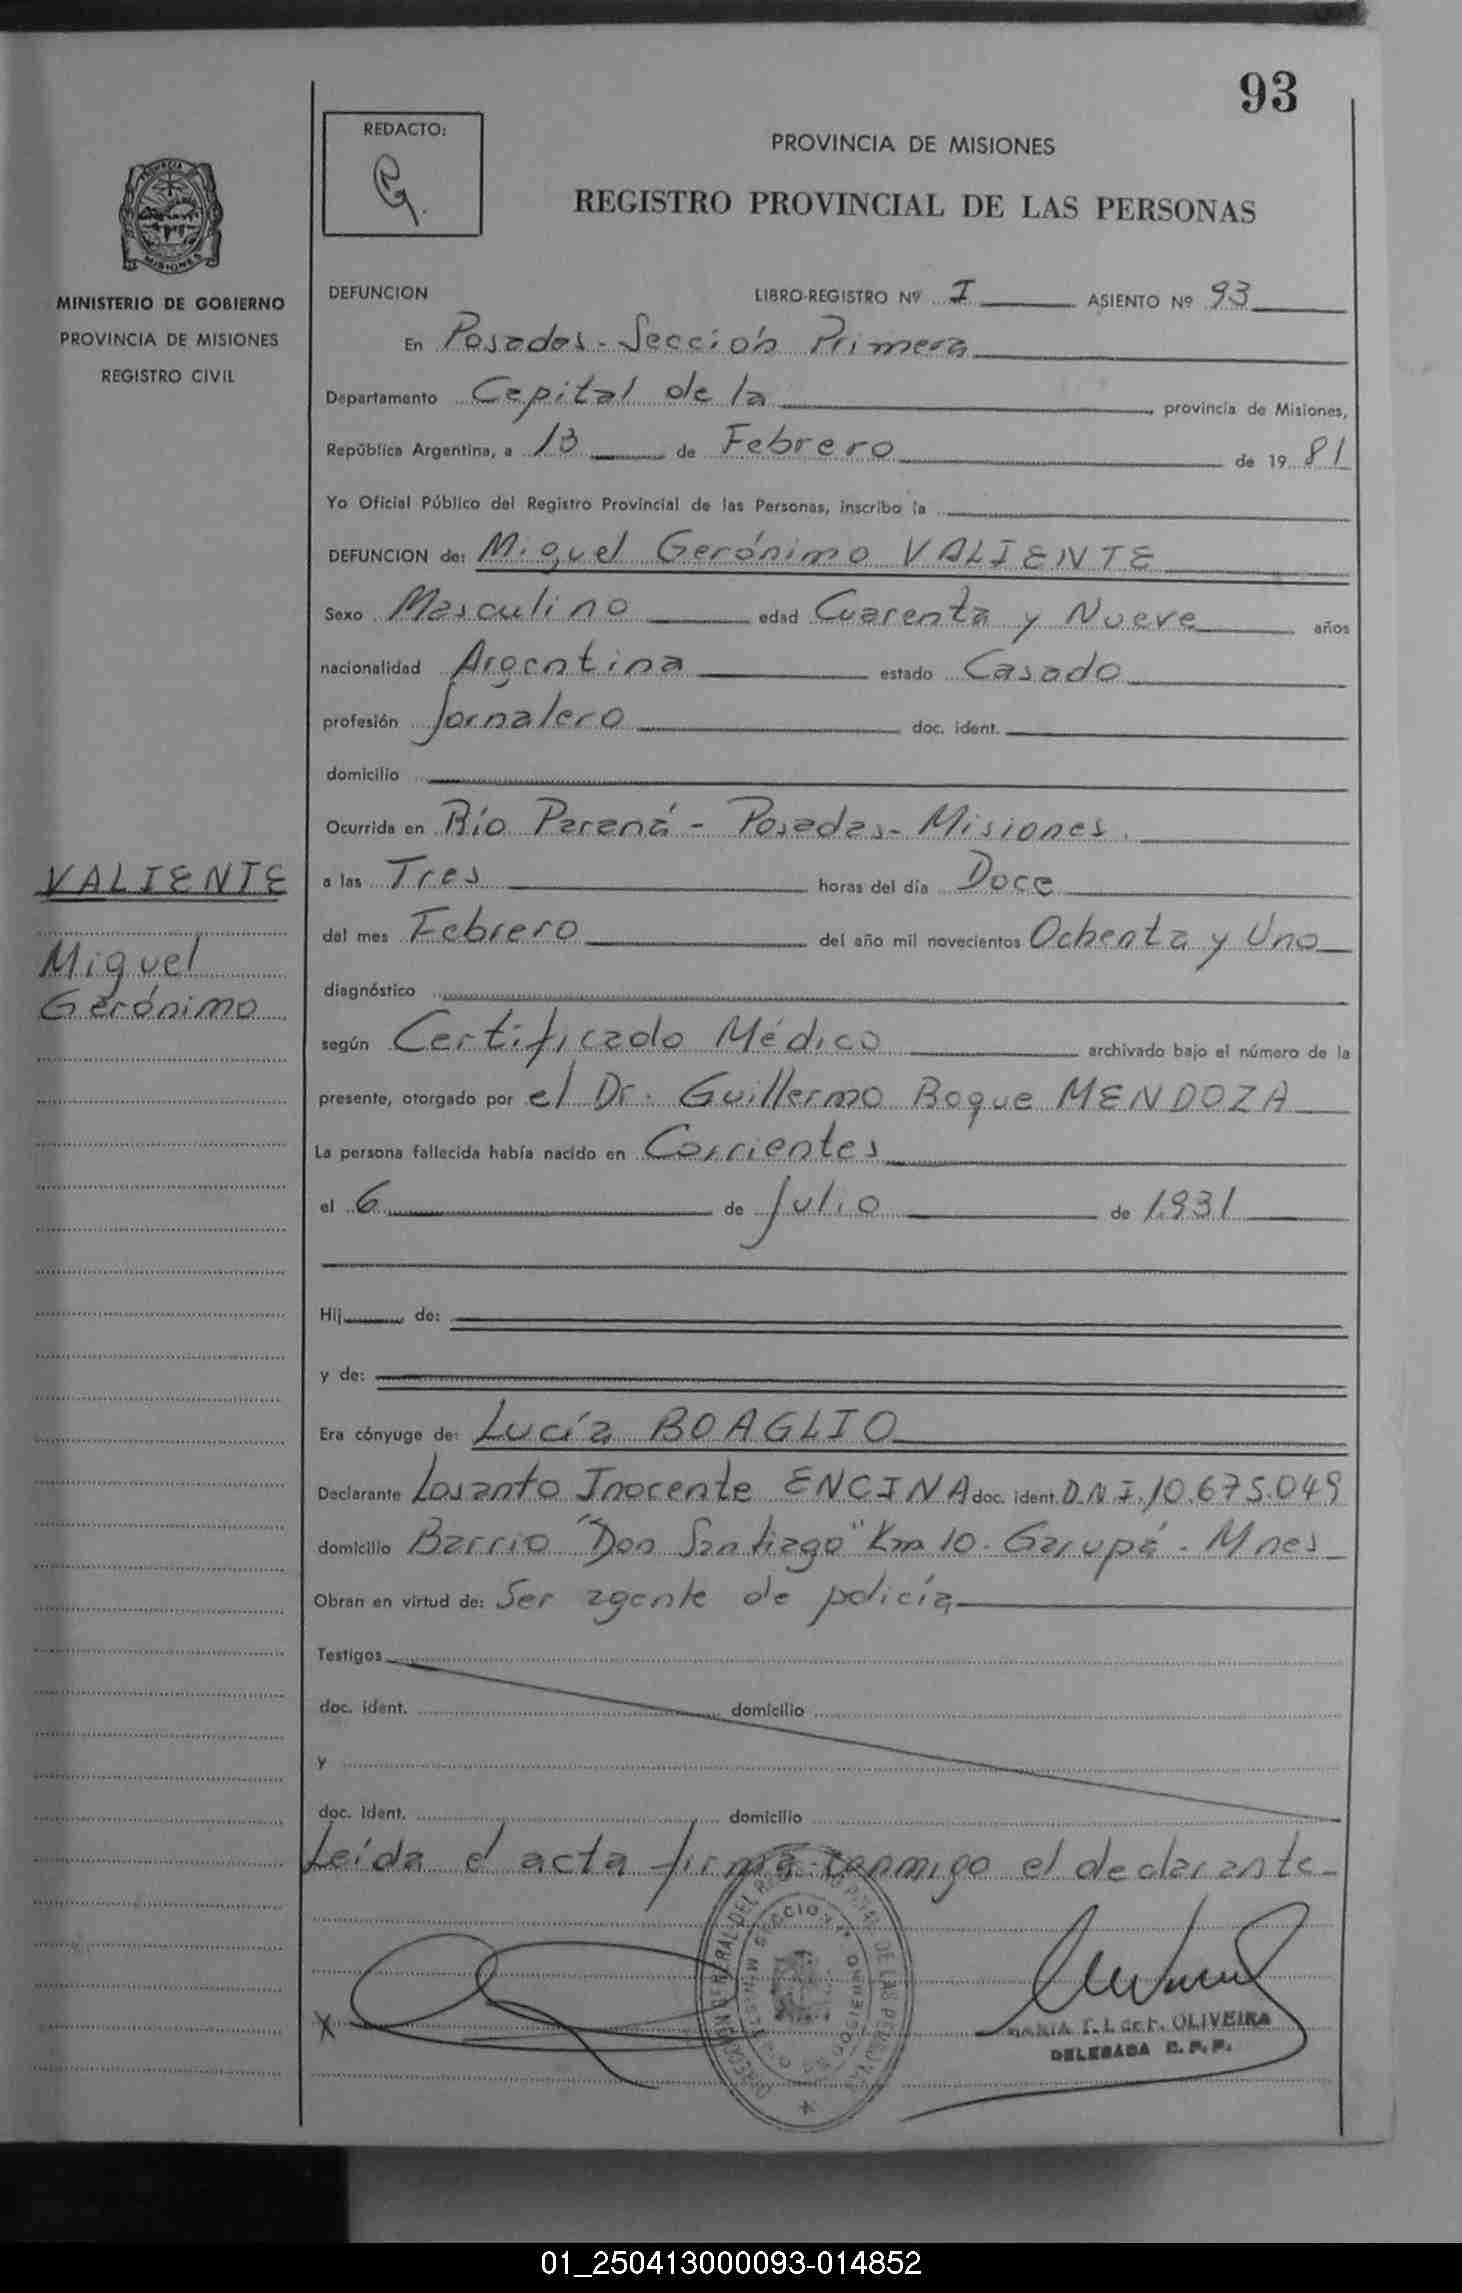 93
REDACTO:
PROVINCIA DE MISIONES
REGISTRO PROVINCIAL DE LAS PERSONAS
PROVINCIA
MISIONES
MINISTERIO DE GOBIERNO
PROVINCIA DE MISIONES
REGISTRO CIVIL
DEFUNCION LIBRO-REGISTRO Nº I ASIENTO Nº 93
En Posadas - Sección Primera
Departamento Capital de la provincia de Misiones,
República Argentina, a 13 de Febrero de 1981
Yo Oficial Público del Registro Provincial de las Personas, inscribo la
DEFUNCION de: Miguel Gerónimo VALIENTE
Sexo Masculino edad Cuarenta y Nueve años
nacionalidad Argentina estado Casado
profesión Jornalero doc. ident.
domicilio
Ocurrida en Río Paraná - Posadas - Misiones.
a las Tres horas del día Doce
del mes Febrero del año mil novecientos Ochenta y Uno
diagnóstico
según Certificado Médico archivado bajo el número de la
presente, otorgado por el Dr. Guillermo Roque MENDOZA
La persona fallecida había nacido en Corrientes
el 6 de Julio de 1.931
Hij de:
y de:
Era cónyuge de: Lucía BOAGLIO
Declarante Losanto Inocente ENCINA doc. ident. D.N.I. 10.675.049
domicilio Barrio "Don Santiago" Km 10 - Garupá - Mnes
Obran en virtud de: Ser agente de policía
Testigos
doc. ident. domicilio
y
doc. ident. domicilio
Leída el acta firma conmigo el declarante
VALIENTE
Miguel
Gerónimo
X
MARIA T. L. de F. OLIVEIRA
DELEGADA R. P. P.
01_250413000093-014852